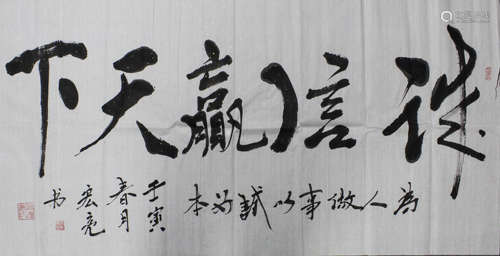 诚信赢天下
为人做事以诚为本
壬寅
春月
宏亮
书